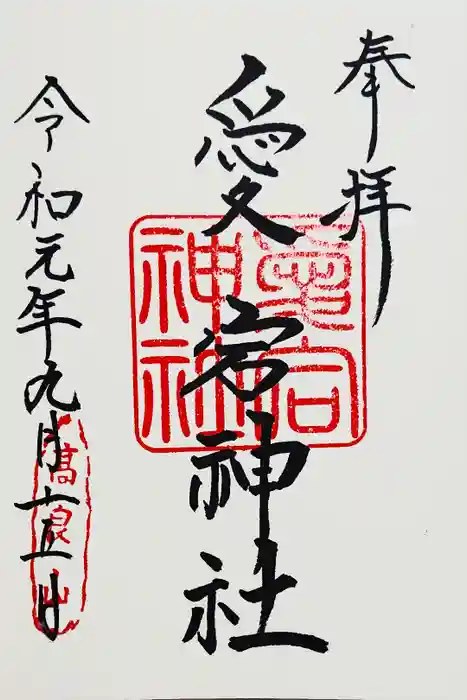 奉拝
愛宕神社
愛宕
神社
令和元年九月十五日
髙良山